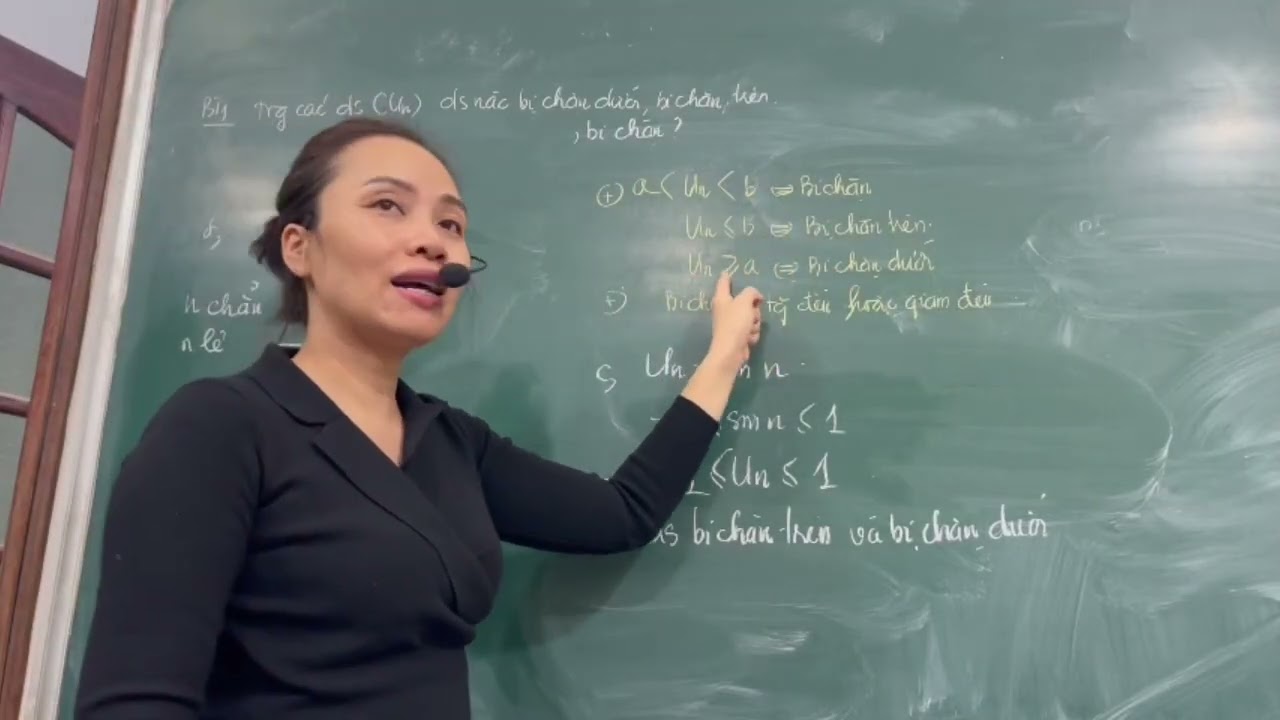 BT1 Trg các ds (Un) ds nào bị chặn dưới, bị chặn trên.
, bị chặn ?
(+) a < Un < b => Bị chặn
Un ≤ b => Bị chặn trên.
Un ≥ a => Bị chặn dưới
đều hoặc giảm đều
n chẵn
n lẻ
Un n
sin n ≤ 1
1 ≤ Un ≤ 1
bị chặn trên và bị chặn dưới